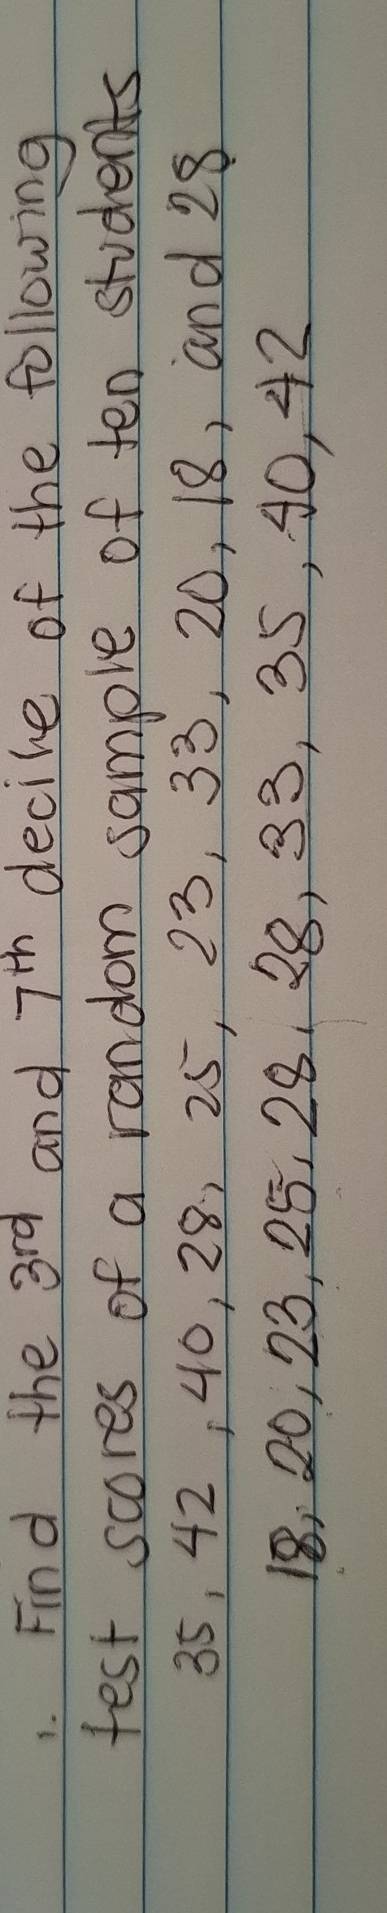 1. Find the 3rd and 7th decile of the following
test scores of a random sample of ten students
35, 42, 40, 28, 25, 23, 33, 20, 18, and 28
18, 20, 23, 25, 28, 28, 33, 35, 40, 42